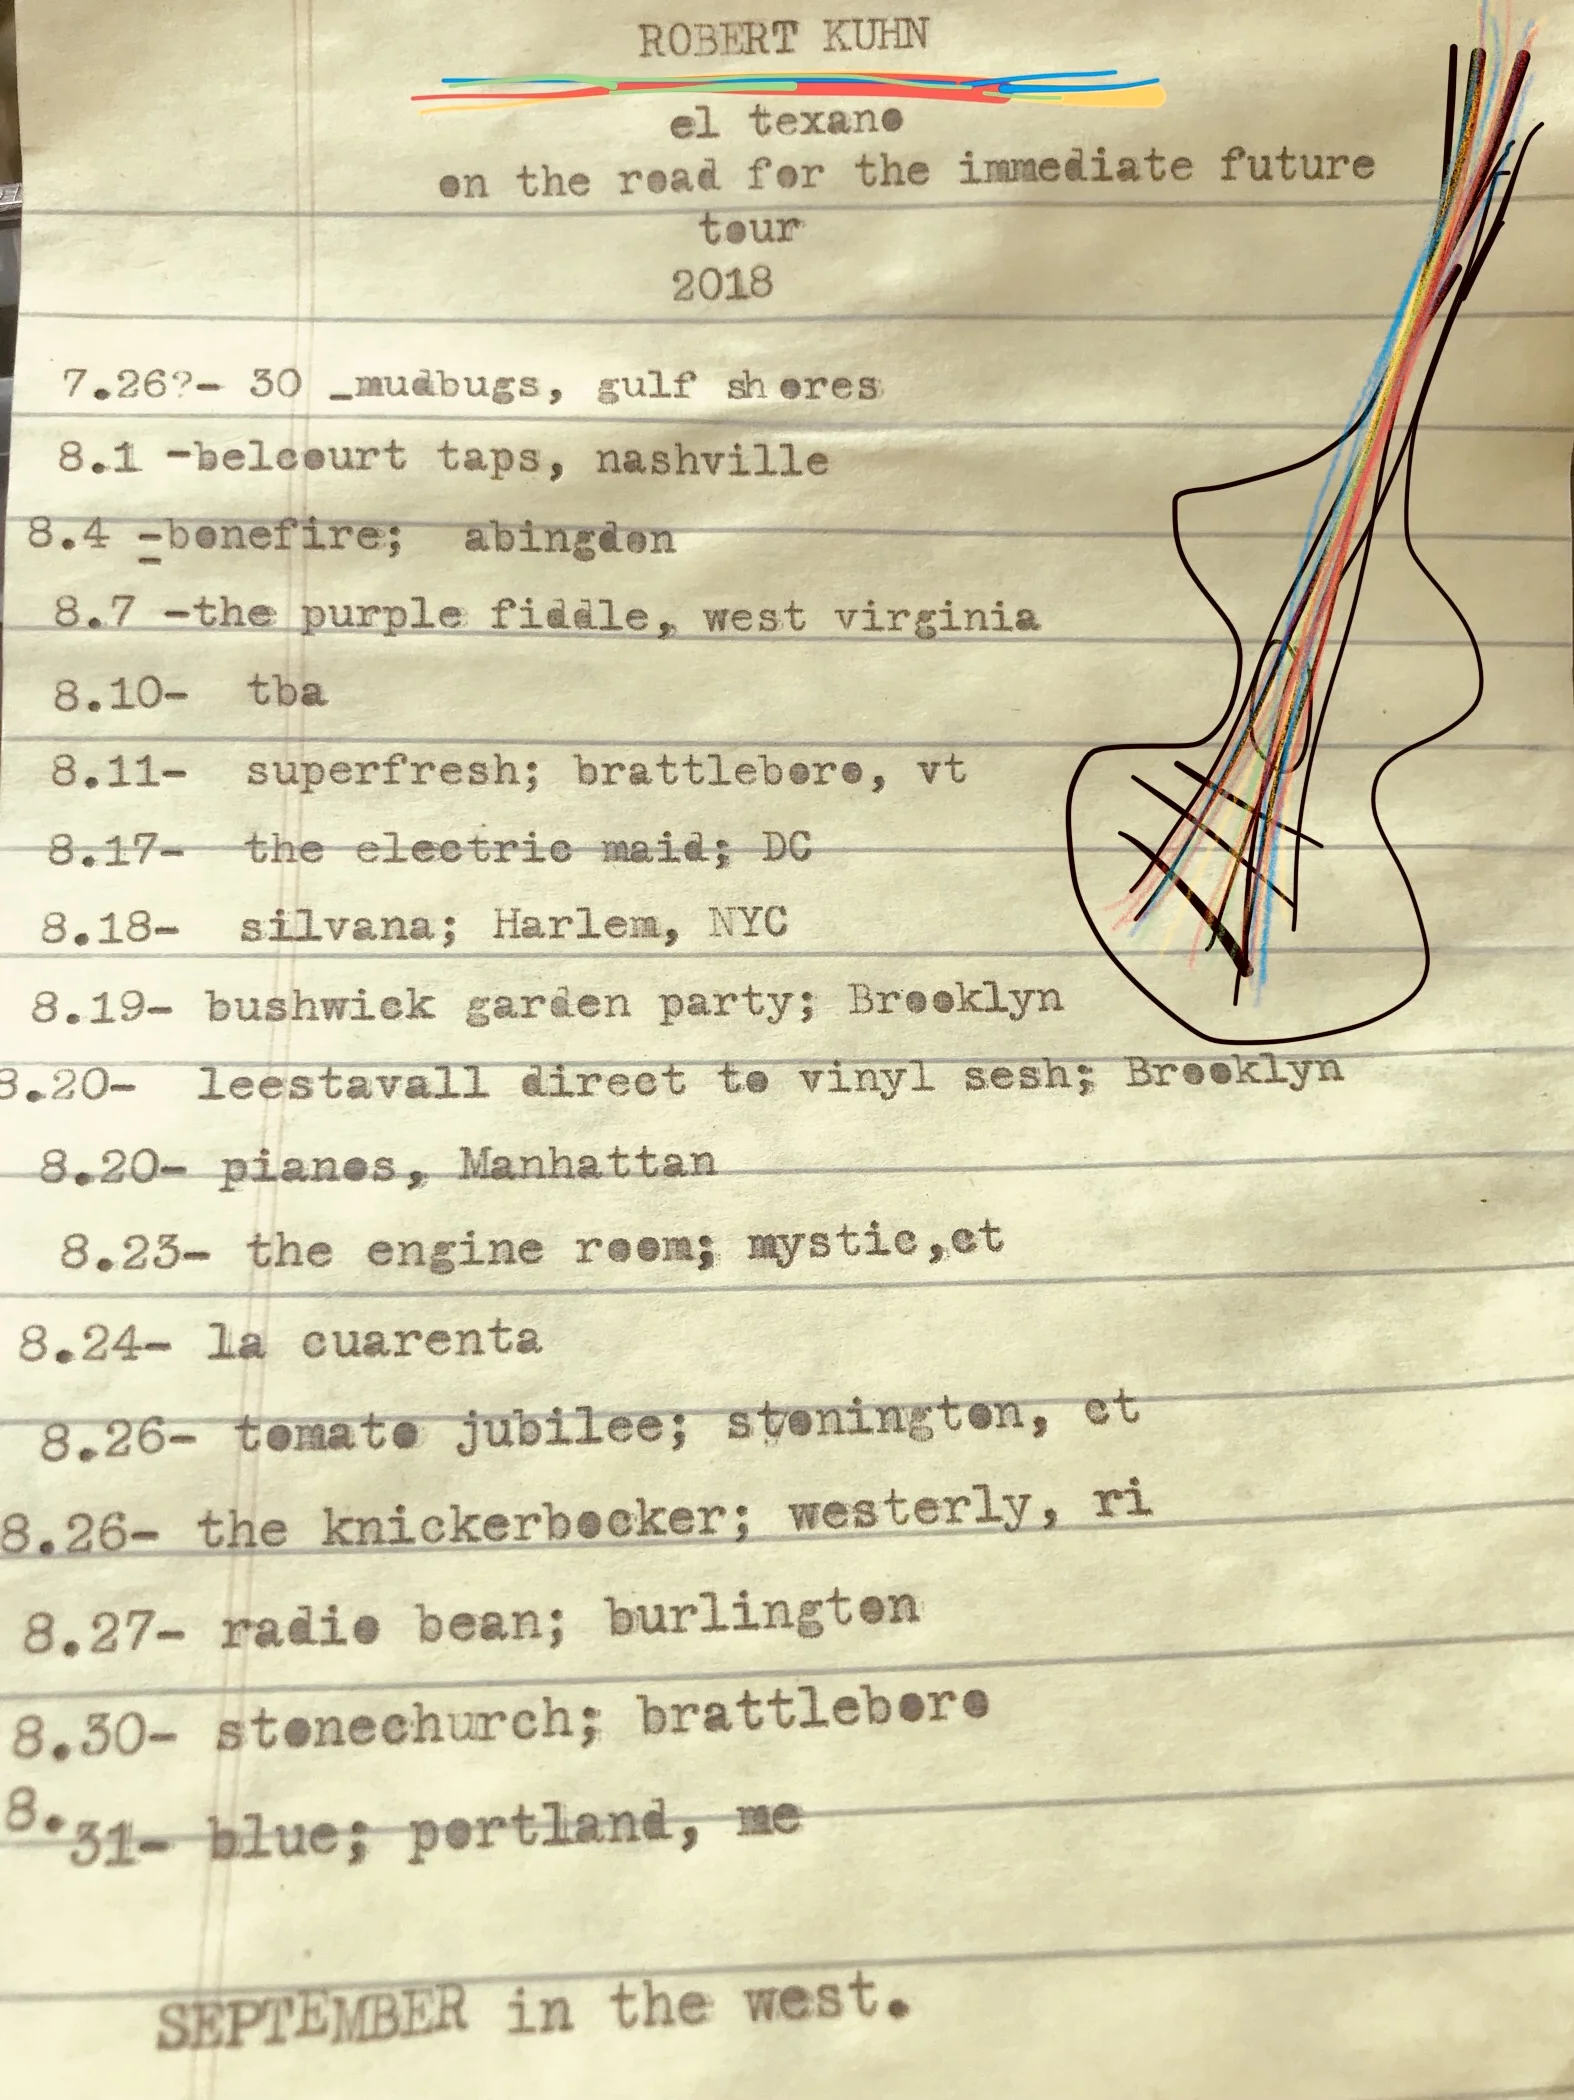 ROBERT KUHN
el texano
on the road for the immediate future
tour
2018
7.26?- 30 _mudbugs, gulf shores
8.1 -belcourt taps, nashville
8.4 -bonefire; abingdon
8.7 -the purple fiddle, west virginia
8.10- tba
8.11- superfresh; brattleboro, vt
8.17- the electric maid; DC
8.18- silvana; Harlem, NYC
8.19- bushwick garden party; Brooklyn
8.20- leestavall direct to vinyl sesh; Brooklyn
8.20- pianos, Manhattan
8.23- the engine room; mystic,ct
8.24- la cuarenta
8.26- tomato jubilee; stonington, ct
8.26- the knickerbocker; westerly, ri
8.27- radio bean; burlington
8.30- stonechurch; brattleboro
8.31- blue; portland, me
SEPTEMBER in the west.